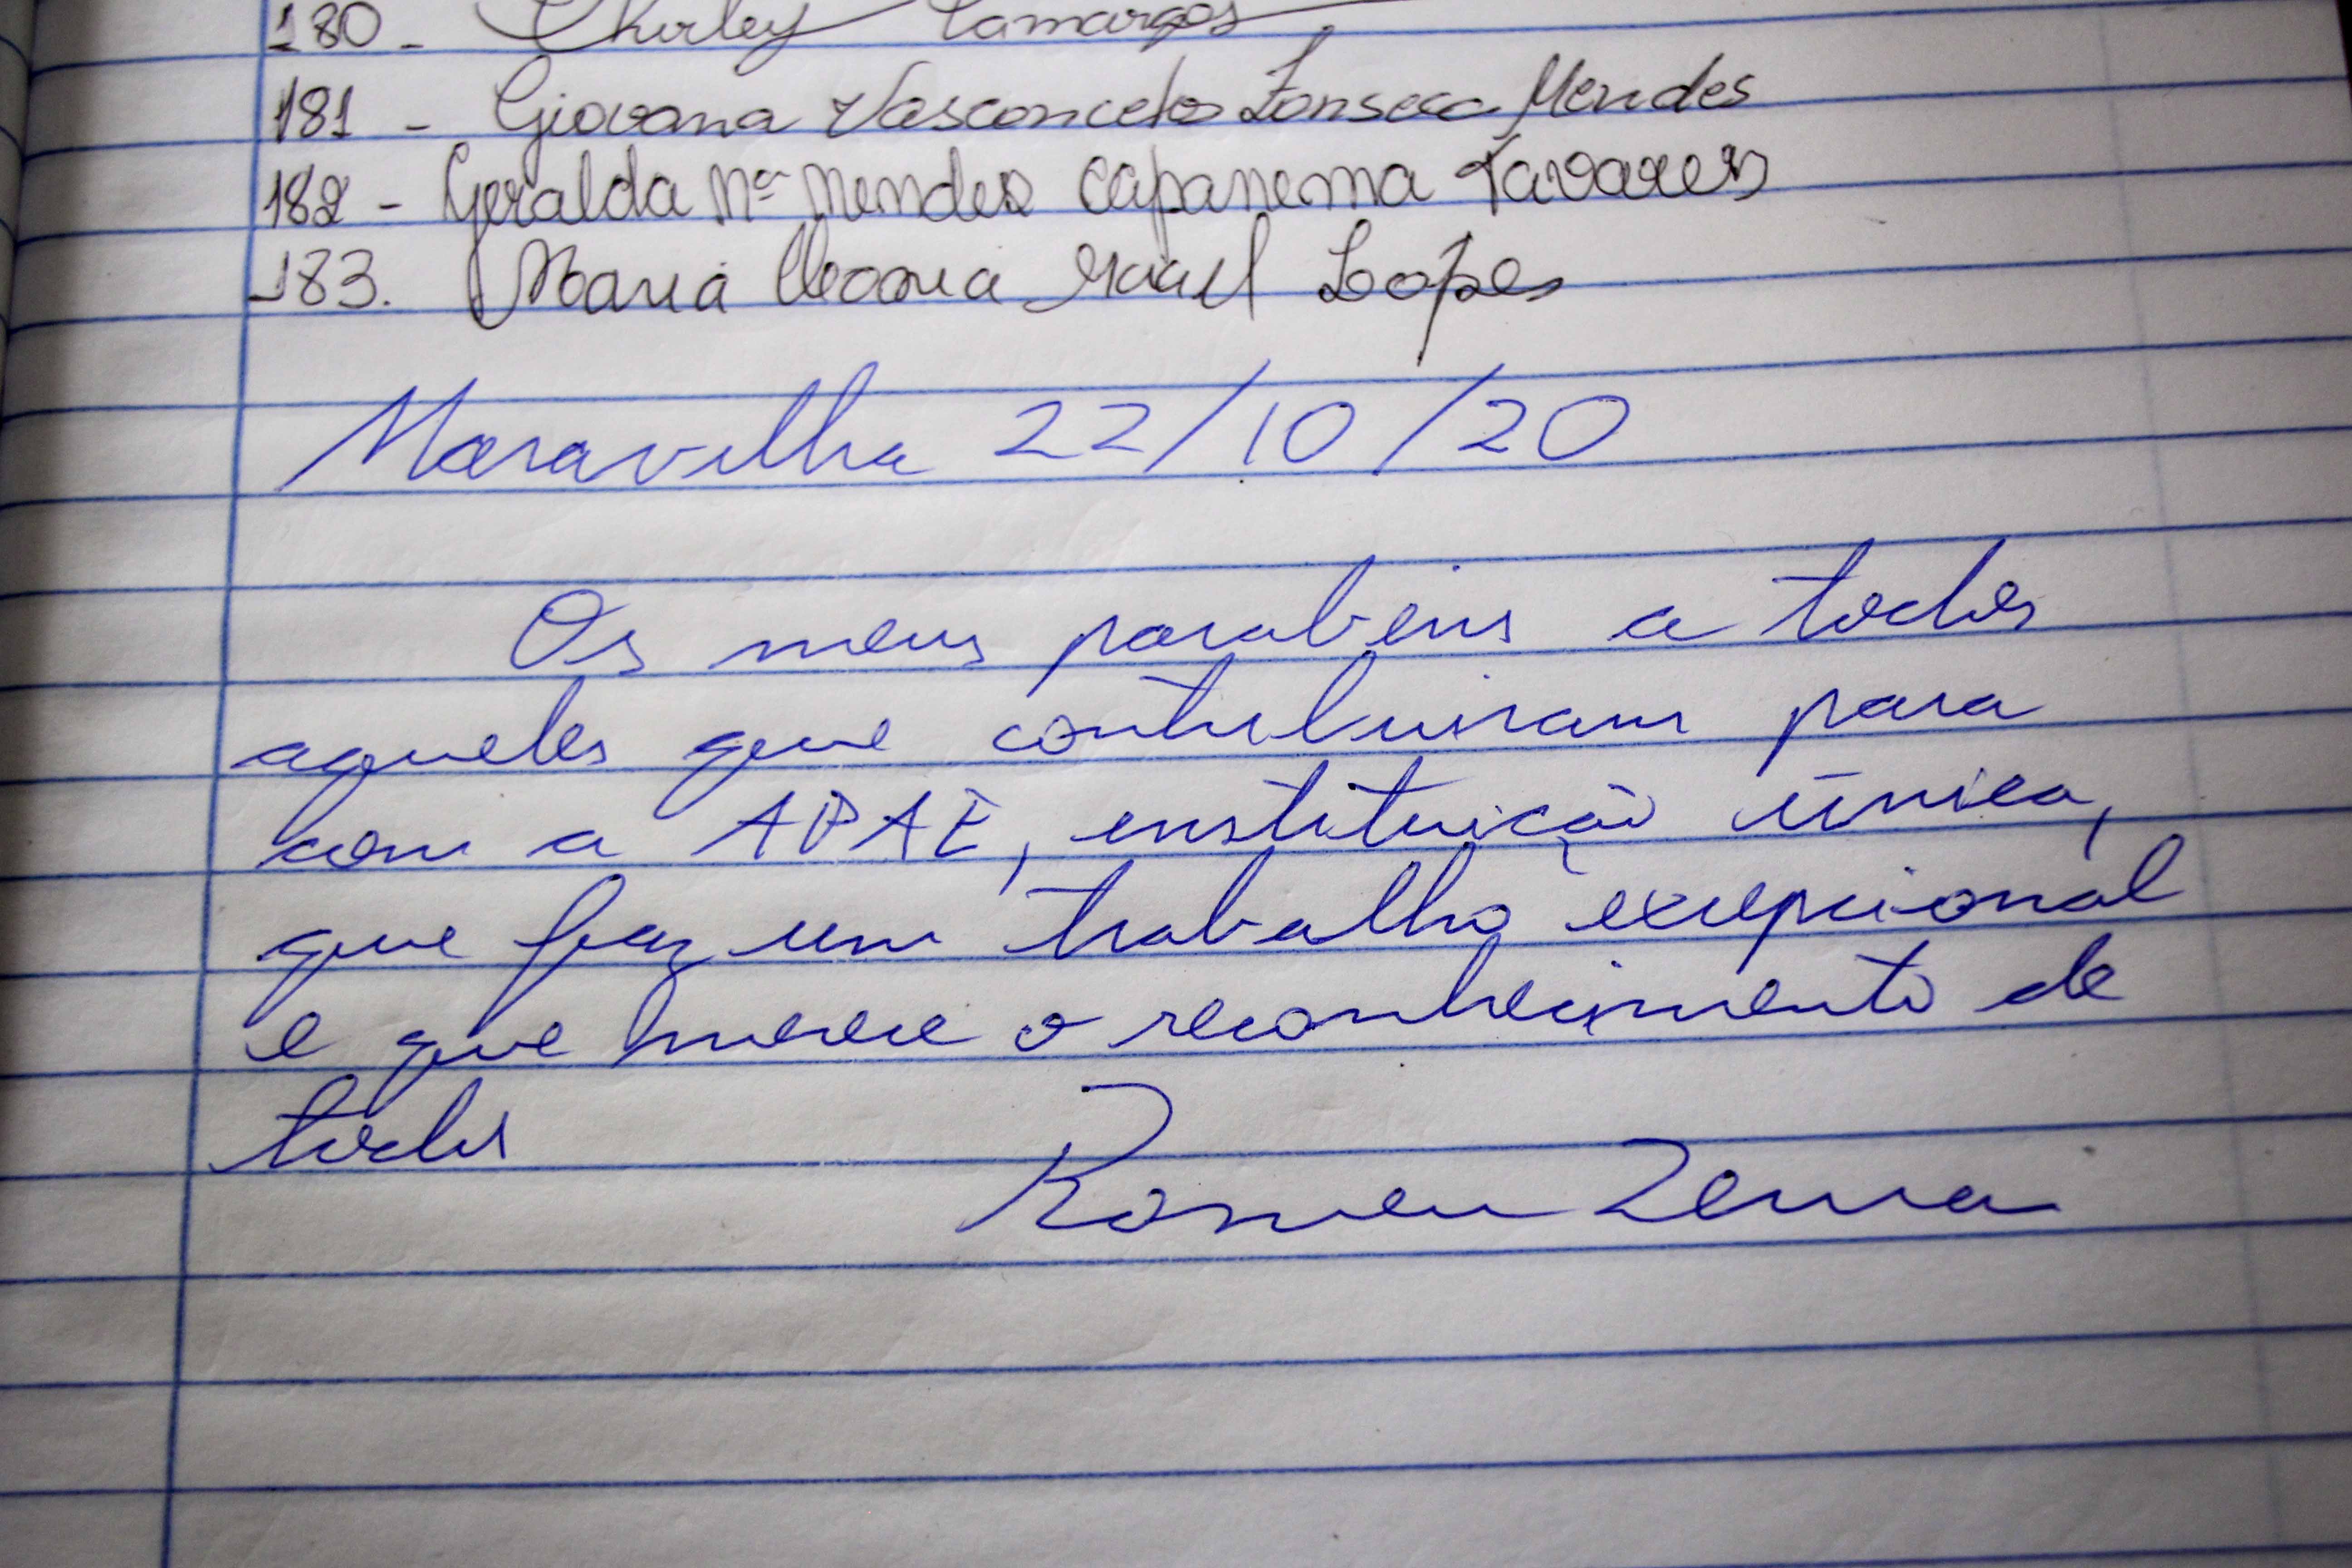 180 - Shirley Camargos
181 - Giovana Vasconcelos Fonseca Mendes
182 - Geralda Mª Mendes Capanema Tavares
183. Maria Lopes
Maravilha 22/10/20
Os meus parabens a todos
aqueles que contribuiram para
com a APAE, instituição única,
que faz um trabalho excepcional
e que merece o reconhecimento de
todos
Romeu Zema